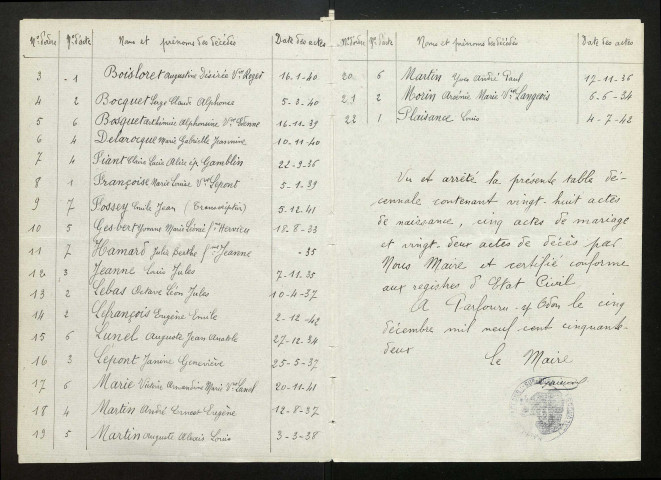 Nº d'ordre Nº d'acte Noms et prénoms des décédés Date des actes
3 1 Boislore Augustine Désirée Vve Roger 16-1-40
4 2 Bocquet Claude Alphonse 5-2-40
5 6 Bosquet Alphonsine Vve Etienne 16-11-39
6 4 Delarocque Marie Gabrielle Jeannine 10-11-40
7 4 Fiant Marie ép Gamblin 22-9-36
8 1 Françoise Marie Louise Vve Lepont 5-1-39
9 7 Fossey Emile Jean (Transcription) 5-12-41
10 5 Gesbert Yvonne Marie Léonie fme Hervieu 18-8-33
11 7 Hamard Julie Berthe fme Jeanne -35
12 3 Jeanne Louis Jules 7-11-35
13 2 Lebas Octave Léon Jules 10-4-37
14 2 Lefrançois Eugène Emile 2-12-42
15 6 Lunel Auguste Jean Anatole 27-12-34
16 3 Lepont Janine Geneviève 25-5-37
17 6 Marie Amandine Marie Vve Lunel 20-11-41
18 4 Martin André Ernest Eugène 12-8-37
19 5 Martin Auguste Alexis Louis 3-3-38
Nº d'ordre Nº d'acte Noms et prénoms des décédés Date des actes
20 6 Martin Yves André Paul 17-11-36
21 2 Morin Arsénie Marie Vve Langlois 6-6-34
22 1 Plaisance Louis 4-7-42
Vu et arrêté la présente table dé-
cennale contenant vingt-huit actes
de naissance, cinq actes de mariage
et vingt-deux actes de décès par
Nous Maire et certifié conforme
aux registres d'Etat Civil
A Parfouru-s/Odon le cinq
décembre mil neuf cent cinquante-
deux
Le Maire